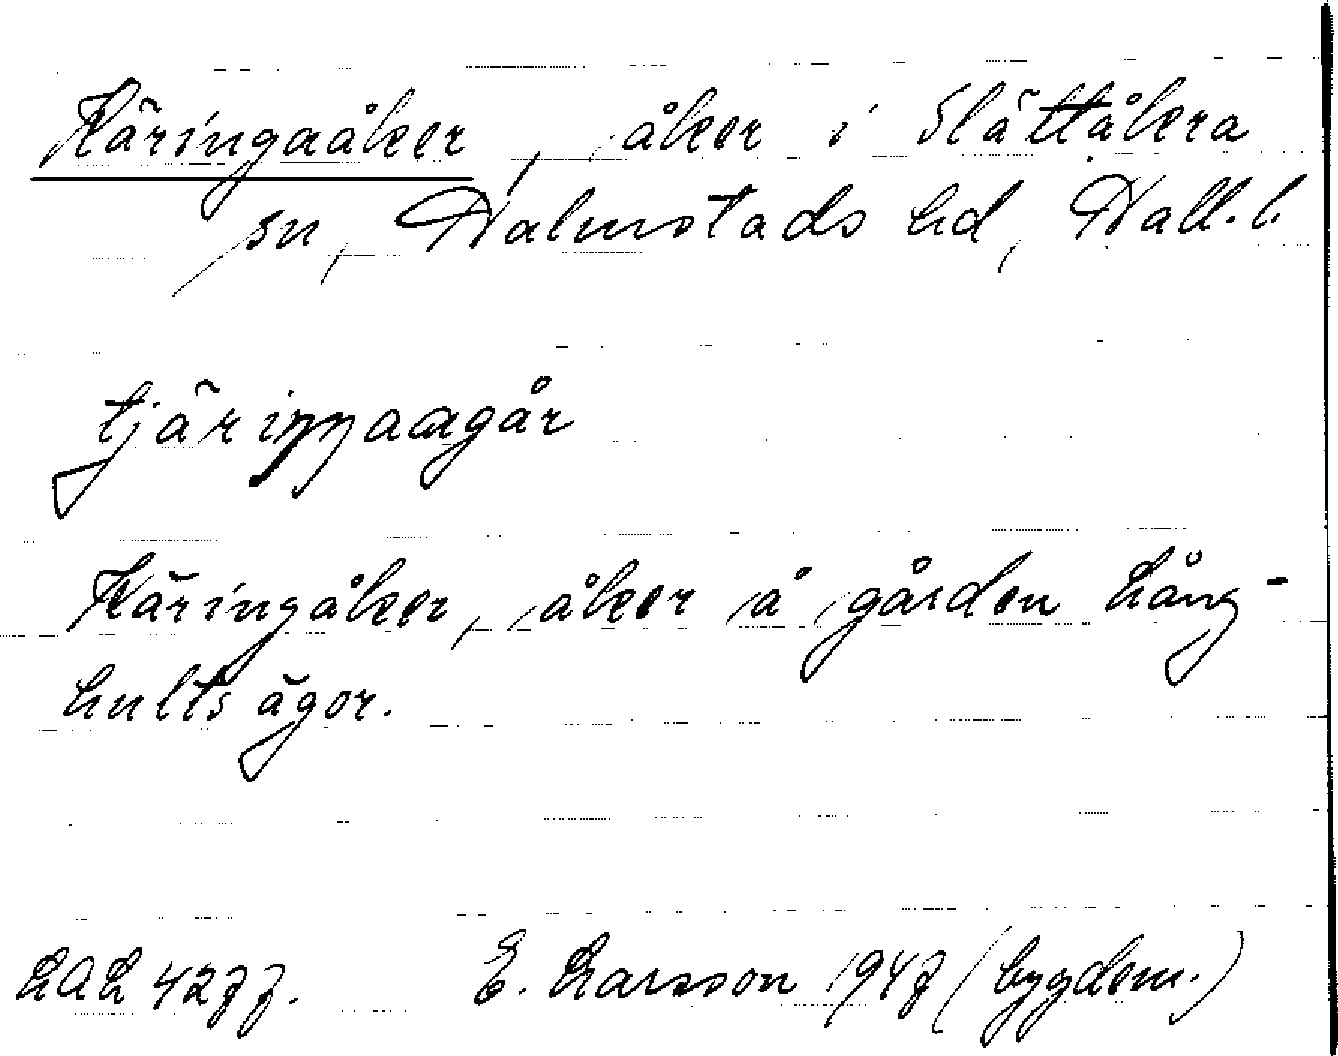 Käringaåker, åker i Slättåkra
sn, Halmstads hd, Hall. l.
tjäriŋŋaagår
Käringåker, åker å gården Lång-
hults ägor.
LAL 4277. E. Larsson 1947 (bygdem.)